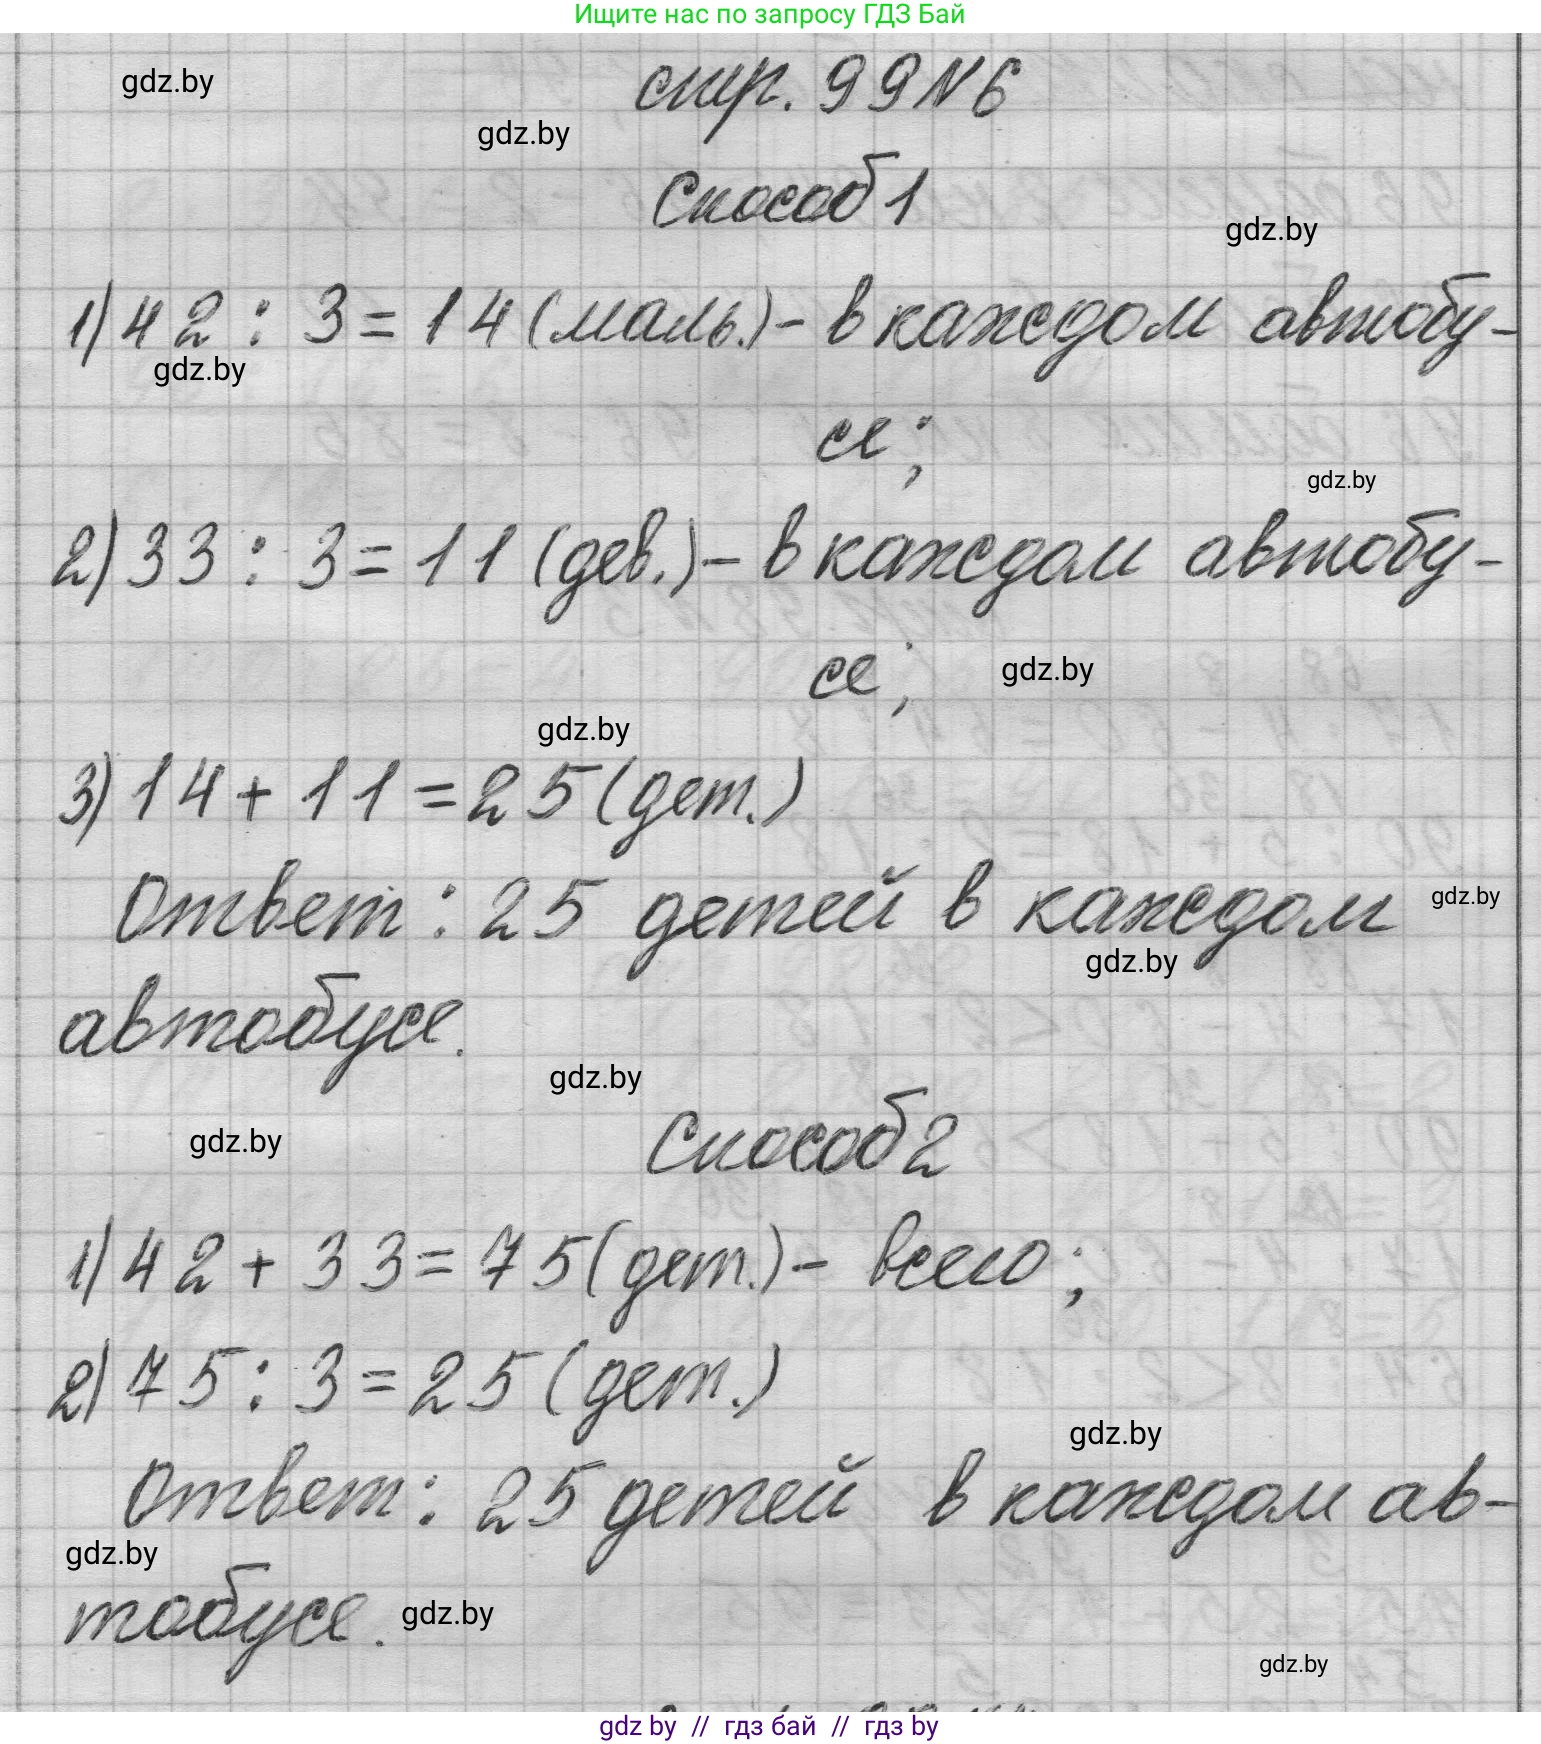 Ищите нас по запросу ГДЗ Бай
gdz.by
стр. 99 N 6
gdz.by
Способ 1
gdz.by
1) 42 : 3 = 14 (маль.) - в каждом автобу-
gdz.by
се;
gdz.by
2) 33 : 3 = 11 (дев.) - в каждом автобу-
се;
gdz.by
gdz.by
3) 14 + 11 = 25 (дет.)
Ответ : 25 детей в каждом
gdz.by
gdz.by
автобусе.
gdz.by
Способ 2
gdz.by
1) 42 + 33 = 75 (дет.) - всего;
2) 75 : 3 = 25 (дет.)
gdz.by
Ответ: 25 детей в каждом ав-
gdz.by
тобусе.
gdz.by
gdz.by
gdz by // гдз бай // gdz by